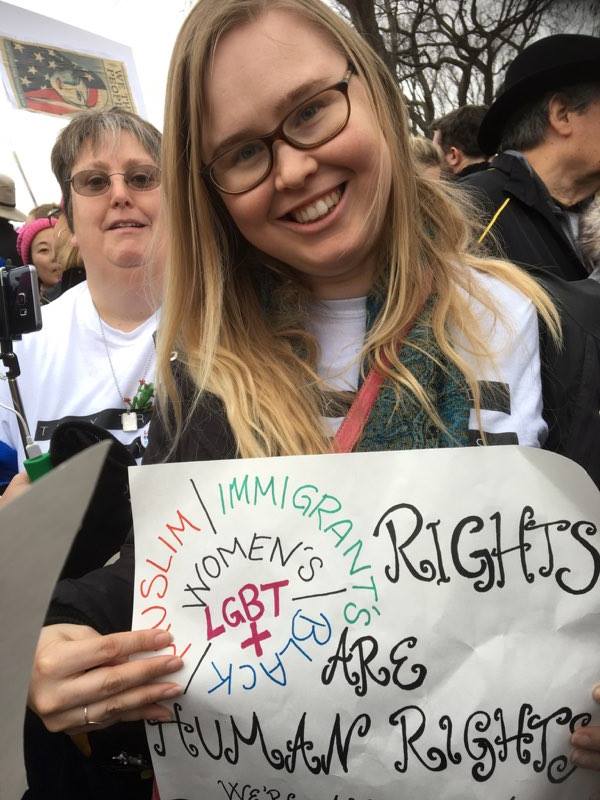 MUSLIM
IMMIGRANT'S
BLACK
WOMEN'S
LGBT
+
RIGHTS
ARE
HUMAN RIGHTS
WE'RE